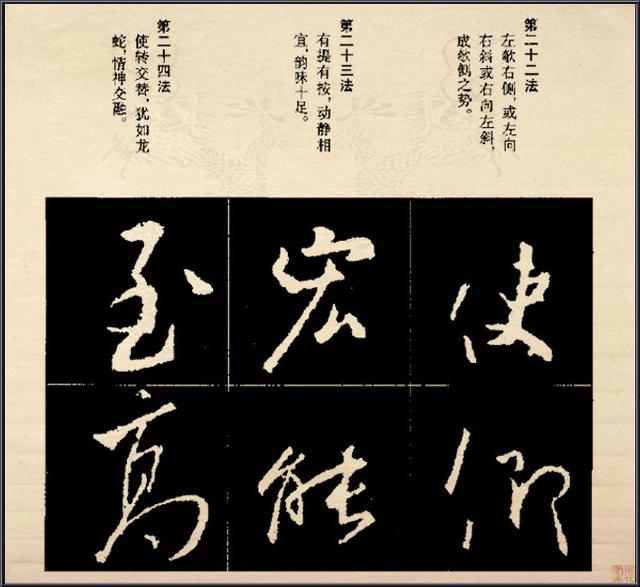 第二十二法
左欹右侧，或左向
右斜或右向左斜，
成欹侧之势。
第二十三法
有提有按，动静相
宜，韵味十足。
第二十四法
使转交替，犹如龙
蛇，情神交融。
使
宏
至
仰
能
高